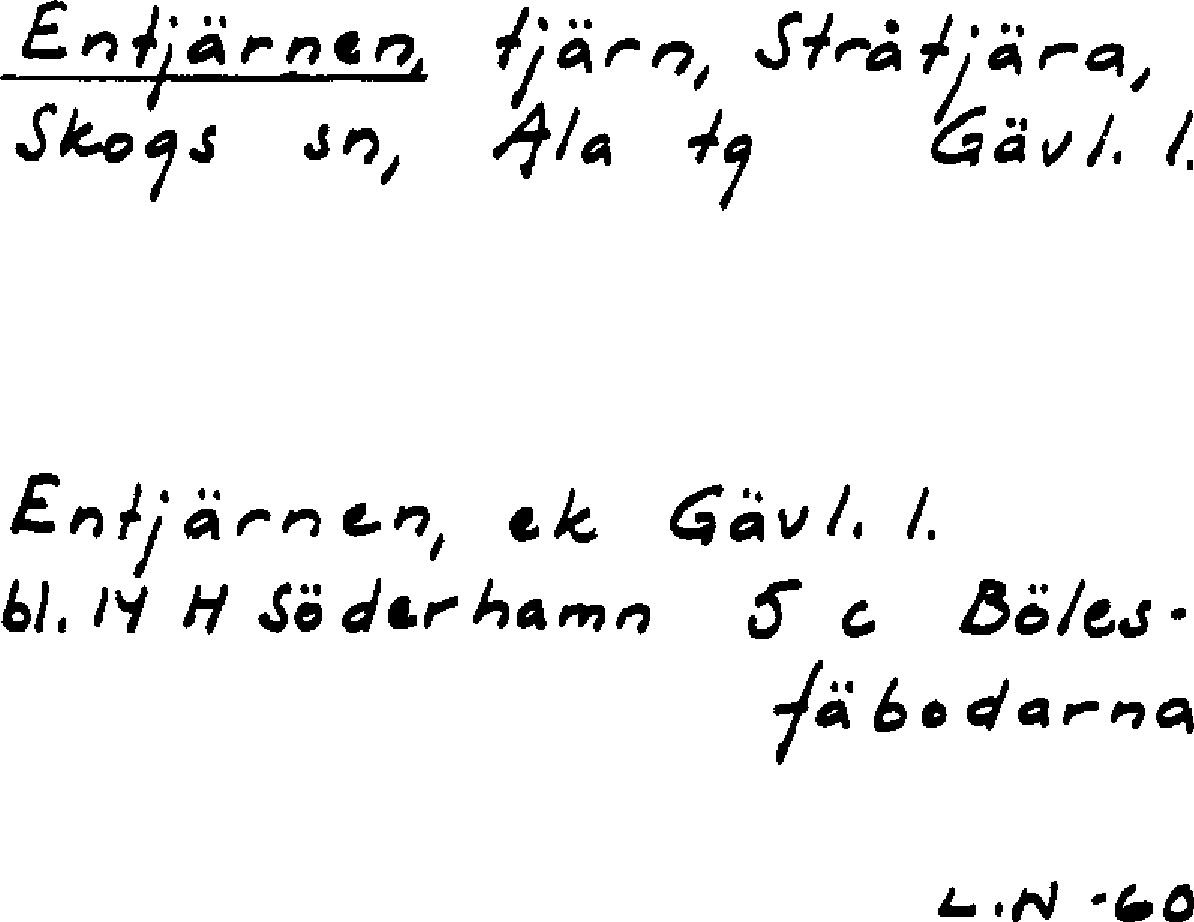 Entjärnen, tjärn, Stråtjära,
Skogs sn, Ala tg Gävl. l.
Entjärnen, ek Gävl. l.
bl. 14 H Söderhamn 5 c Böles-
fäbodarna
L.N -60